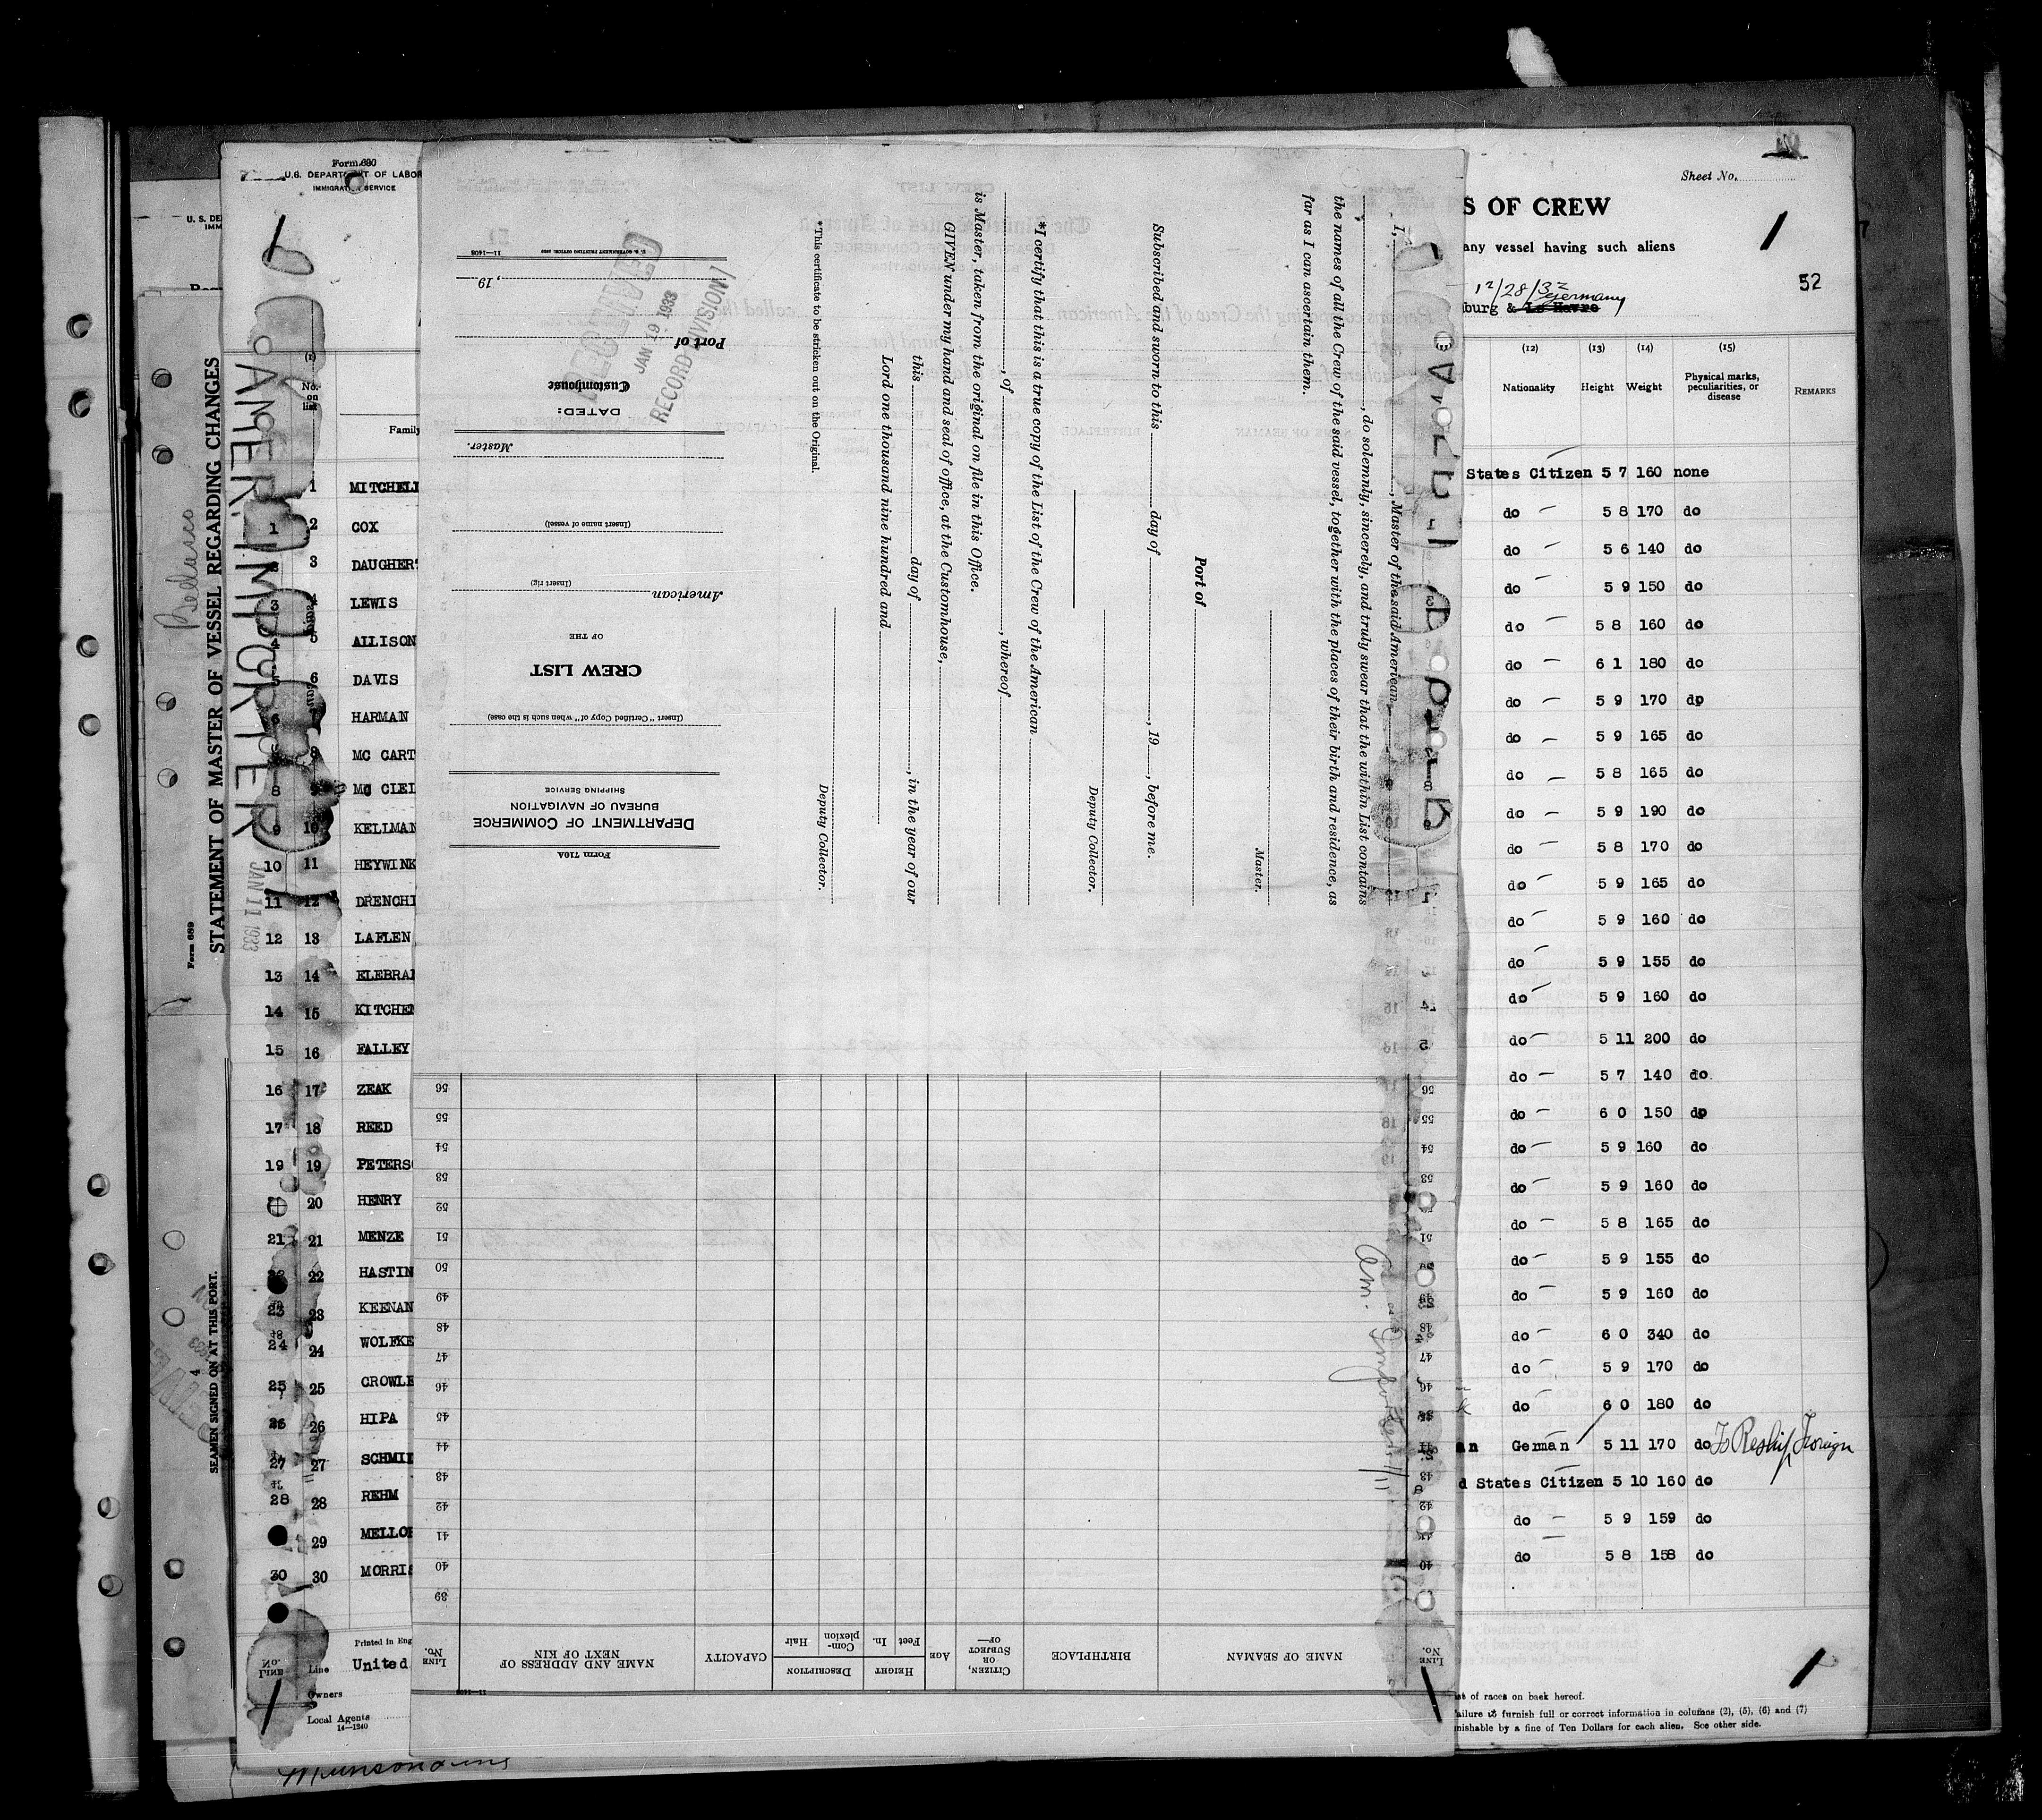 Form 680
U.S. DEPARTMENT OF LABOR
IMMIGRATION SERVICE
STATEMENT OF MASTER OF VESSEL REGARDING CHANGES
Form 689
4
SEAMEN SIGNED ON AT THIS PORT.
AMER. IMPORTER
JAN 11 1933
(1)
No. on list
Family
1 MITCHELL
1 2 COX
3 DAUGHERT
3 4 LEWIS
4 5 ALLISON
5 6 DAVIS
6 7 HARMAN
8 MC CART
8 9 MC CLEL
9 10 KELLMAN
10 11 HEYWINK
11 12 DRENCHI
12 13 LAFLEN
13 14 ELEBRAN
14 15 KITCHEN
15 16 FALLEY
16 17 ZEAK
17 18 REED
19 19 PETERSO
20 HENRY
21 21 MENZE
22 HASTIN
23 23 KEENAN
24 24 WOLFKE
25 25 CROWLE
26 26 HIPA
27 27 SCHMID
28 28 REHM
29 MELLOR
30 30 MORRIS
Printed in Eng
Line United
Owners
Local Agents
14—1240
LINE No.
Form 710A
DEPARTMENT OF COMMERCE
BUREAU OF NAVIGATION
SHIPPING SERVICE
(Insert "Certified Copy of" when such is the case)
CREW LIST
OF THE
American
(Insert rig)
(Insert name of vessel)
Master.
DATED:
Customhouse
Port of
, 19
U. S. GOVERNMENT PRINTING OFFICE: 1929 11—1408
RECEIVED
JAN 19 1933
RECORD DIVISION
I, , Master of the said American
, do solemnly, sincerely, and truly swear that the within List contains
the names of all the Crew of the said vessel, together with the places of their birth and residence, as
far as I can ascertain them.
Master.
Port of
Subscribed and sworn to this day of , 19 , before me.
Deputy Collector.
*I certify that this is a true copy of the List of the Crew of the American
, of , whereof
is Master, taken from the original on file in this Office.
GIVEN under my hand and seal of office, at the Customhouse,
this day of , in the year of our
Lord one thousand nine hundred and
Deputy Collector.
*This certificate to be stricken out on the Original.
LINE No.
NAME OF SEAMAN
BIRTHPLACE
CITIZEN, OR SUBJECT OF—
AGE
HEIGHT
Feet In.
DESCRIPTION
Com-plexion Hair
CAPACITY
NAME AND ADDRESS OF NEXT OF KIN
LINE No.
39
40
41
42
43
44
45
46
47
48
49
50
51
52
53
54
55
56
Am. Importer
Sheet No.
S OF CREW
any vessel having such aliens
52
12/28/32
burg & Le Havre Germany
(12) Nationality
(13) Height
(14) Weight
(15) Physical marks, peculiarities, or disease
REMARKS
States Citizen 5 7 160 none
do — 5 8 170 do
do — 5 6 140 do
do — 5 9 150 do
do — 5 8 160 do
do — 6 1 180 do
do — 5 9 170 do
do — 5 9 165 do
do — 5 8 165 do
do — 5 9 190 do
do — 5 8 170 do
do — 5 9 165 do
do — 5 9 160 do
do — 5 9 155 do
do — 5 9 160 do
do — 5 11 200 do
do — 5 7 140 do
do — 6 0 150 do
do — 5 9 160 do
do — 5 9 160 do
do — 5 8 165 do
do — 5 9 155 do
do — 5 9 160 do
do — 6 0 340 do
do — 5 9 170 do
do 6 0 180 do
an German 5 11 170 do To Reship Foreign
d States Citizen 5 10 160 do
do — 5 9 159 do
do 5 8 158 do
st of races on back hereof.
ailure to furnish full or correct information in columns (2), (5), (6) and (7)
nishable by a fine of Ten Dollars for each alien. See other side.